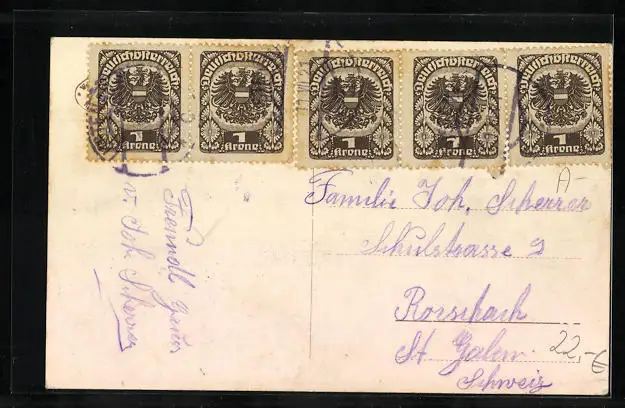 Deutschösterreich Deutschösterreich Deutschösterreich Deutschösterreich Deutschösterreich
1 1 1 1 1
Krone Krone Krone Krone Krone
A-
Familie Joh. Scherrer
Schulstrasse 2
Rorschach
St Galen
Schweiz
22,-€
Freundl Grüss
v. Joh Scherrer